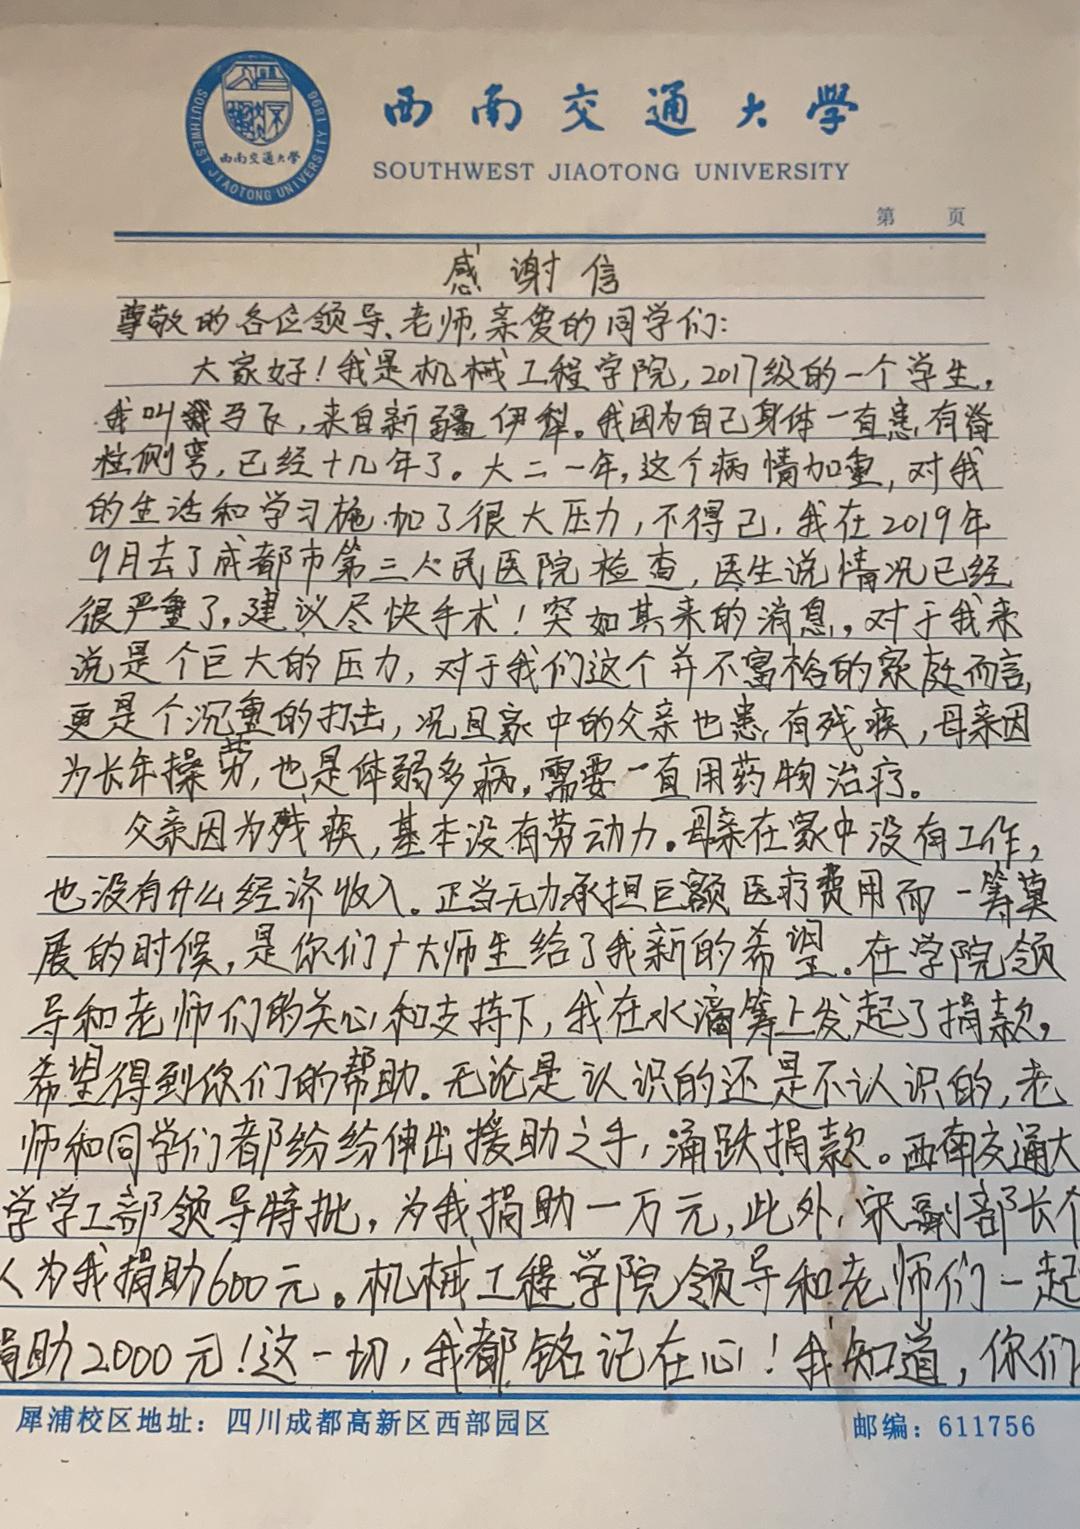 SOUTHWEST JIAOTONG UNIVERSITY 1896
西南交通大学
西南交通大学
SOUTHWEST JIAOTONG UNIVERSITY
第 页
感谢信
尊敬的各位领导、老师,亲爱的同学们:
大家好!我是机械工程学院,2017级的一个学生,
我叫马飞,来自新疆伊犁。我因为自己身体一直患有脊
柱侧弯,已经十几年了。大二一年,这个病情加重,对我
的生活和学习施加了很大压力,不得已,我在2019年
9月去了成都市第三人民医院检查,医生说情况已经
很严重了,建议尽快手术!突如其来的消息,对于我来
说是个巨大的压力,对于我们这个并不富裕的家庭而言,
更是个沉重的打击,况且家中的父亲也患有残疾,母亲因
为长年操劳,也是体弱多病,需要一直用药物治疗。
父亲因为残疾,基本没有劳动力。母亲在家中没有工作,
也没有什么经济收入。正当无力承担巨额医疗费用而一筹莫
展的时候,是你们广大师生给了我新的希望。在学院领
导和老师们的关心和支持下,我在水滴筹上发起了捐款,
希望得到你们的帮助。无论是认识的还是不认识的,老
师和同学们都纷纷伸出援助之手,涌跃捐款。西南交通大
学学工部领导特批,为我捐助一万元,此外,宋副部长个
人为我捐助600元。机械工程学院领导和老师们一起
捐助2000元!这一切,我都铭记在心!我知道,你们
犀浦校区地址:四川成都高新区西部园区
邮编:611756